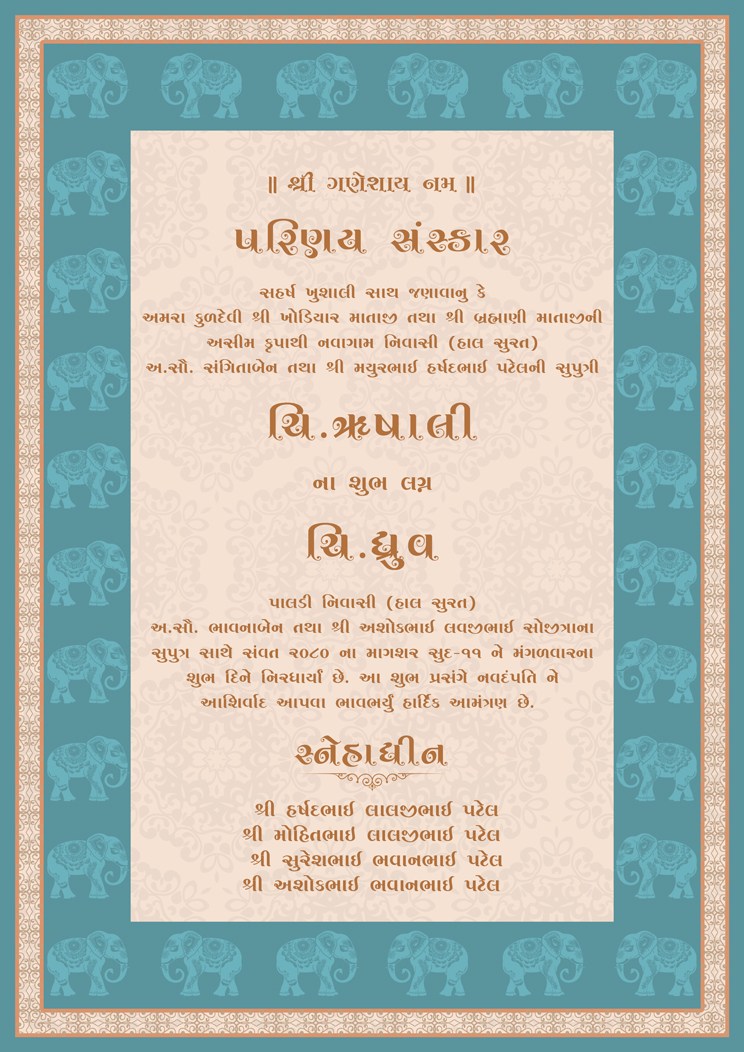 ॥ શ્રી ગણેશાય નમ ॥
પરિણય સંસ્કાર
સહર્ષ ખુશાલી સાથ જણાવાનુ કે
અમરા કુળદેવી શ્રી ખોડિયાર માતાજી તથા શ્રી બ્રહ્માણી માતાજીની
અસીમ કૃપાથી નવાગામ નિવાસી (હાલ સુરત)
અ.સૌ. સંગિતાબેન તથા શ્રી મયુરભાઈ હર્ષદભાઈ પટેલની સુપુત્રી
ચિ.ઋષાલી
ના શુભ લગ્ન
ચિ.ધ્રુવ
પાલડી નિવાસી (હાલ સુરત)
અ.સૌ. ભાવનાબેન તથા શ્રી અશોકભાઈ લવજીભાઈ સોજીત્રાના
સુપુત્ર સાથે સંવત ૨૦૮૦ ના માગશર સુદ-૧૧ ને મંગળવારના
શુભ દિને નિરધાર્યાં છે. આ શુભ પ્રસંગે નવદંપતિ ને
આશિર્વાદ આપવા ભાવભર્યું હાર્દિક આમંત્રણ છે.
સ્નેહાધીન
શ્રી હર્ષદભાઈ લાલજીભાઈ પટેલ
શ્રી મોહિતભાઈ લાલજીભાઈ પટેલ
શ્રી સુરેશભાઈ ભવાનભાઈ પટેલ
શ્રી અશોકભાઈ ભવાનભાઈ પટેલ